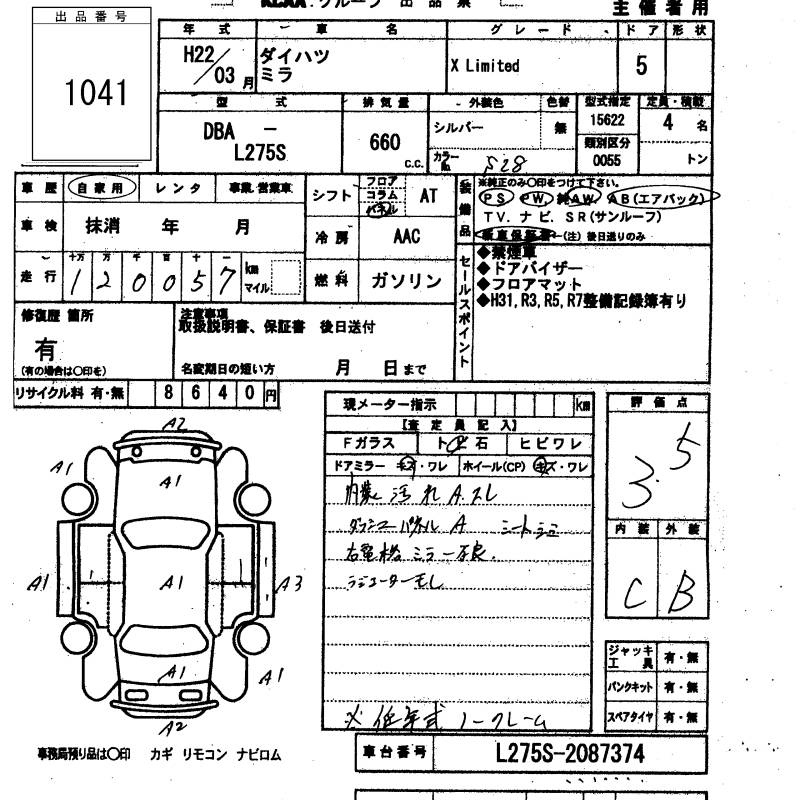 出品番号
1041
主催者用
年式 車名 グレード ドア 形状
H22/03月 ダイハツ ミラ X Limited 5
型式 排気量 外装色 色替 型式指定 定員・積載
DBA - L275S 660 c.c. シルバー 無 15622 4名
カラーNo. S28 類別区分 0055 トン
車歴 自家用 レンタ 事業・営業車
車検 抹消 年 月
走行 十万 万 千 百 十 一
120057 km マイル
シフト フロア コラム パネル AT
冷房 AAC
燃料 ガソリン
装備品 ※純正のみ〇印をつけて下さい。
PS PW 純AW AB(エアバック)
TV. ナビ. SR(サンルーフ)
新車保証書-(注) 後日送りのみ
セールスポイント
◆禁煙車
◆ドアバイザー
◆フロアマット
◆H31,R3,R5,R7整備記録簿有り
修復歴 箇所
有
(有の場合は〇印を)
注意事項
取扱説明書、保証書 後日送付
名変期日の短い方 月 日まで
リサイクル料 有・無 8640円
現メーター指示 km
【査定員記入】
Fガラス トビ石 ヒビワレ
ドアミラー キズ・ワレ ホイール(CP) キズ・ワレ
内装 汚れ A.スレ
ダッシュパネル A シート
右電格ミラー不良.
※ 低年式 ノークレーム
評価点
3.5
内装 外装
C B
ジャッキ工具 有・無
パンクキット 有・無
スペアタイヤ 有・無
A2
A1
A1
A1
A1
A3
A1
A1
A2
事務局預り品は〇印 カギ リモコン ナビロム
車台番号 L275S-2087374